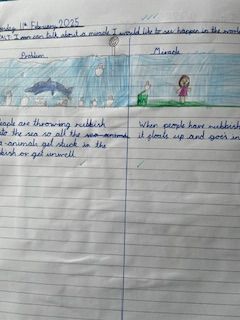 11th February 2025
I can talk about a miracle I would like to see happen in the world
Problem
Miracle
people are throwing rubbish
into the sea so all the sea anima
sea-animals get stuck in the
rubbish or get unwell.
When people have rubbish
it floats up and goes in